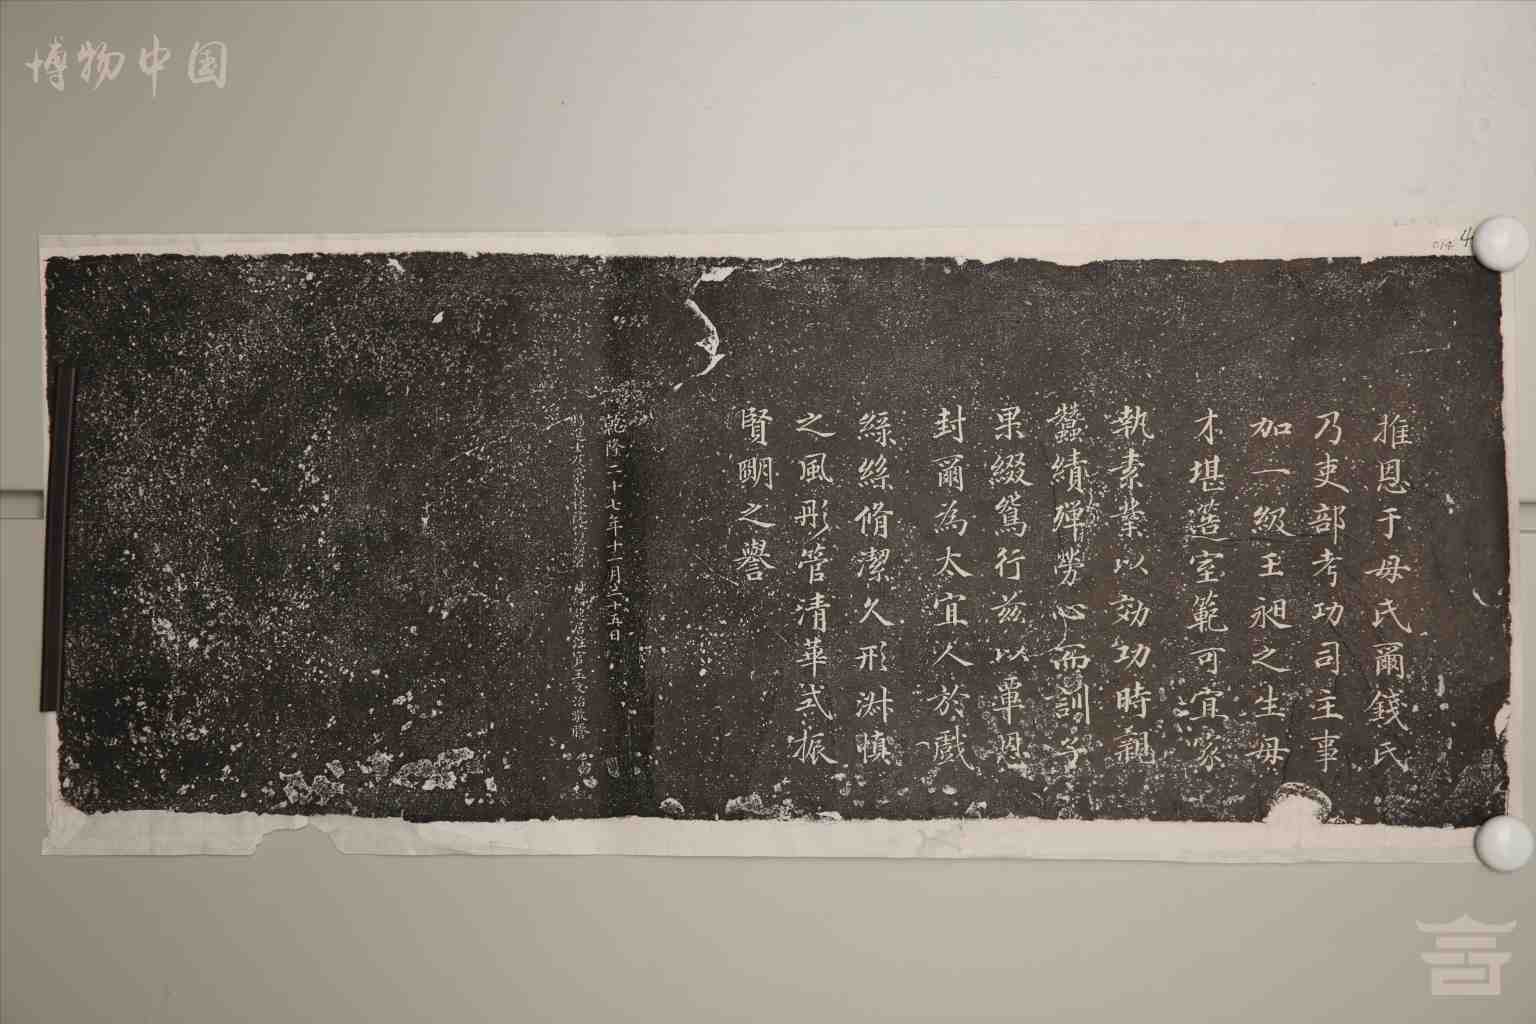 博物中国
014 4
推恩于母氏爾錢氏
乃吏部考功司主事
加一級王昶之生母
才堪造室範可宜家
執素業以効功時親
蠶績殫勞心而訓子
果綴篤行茲以覃恩
封爾為太宜人於戲
綵絲脩潔久形淋慎
之風彤管清華式振
賢明之譽
乾隆二十七年十二月二十五日
起居注官王文治敬